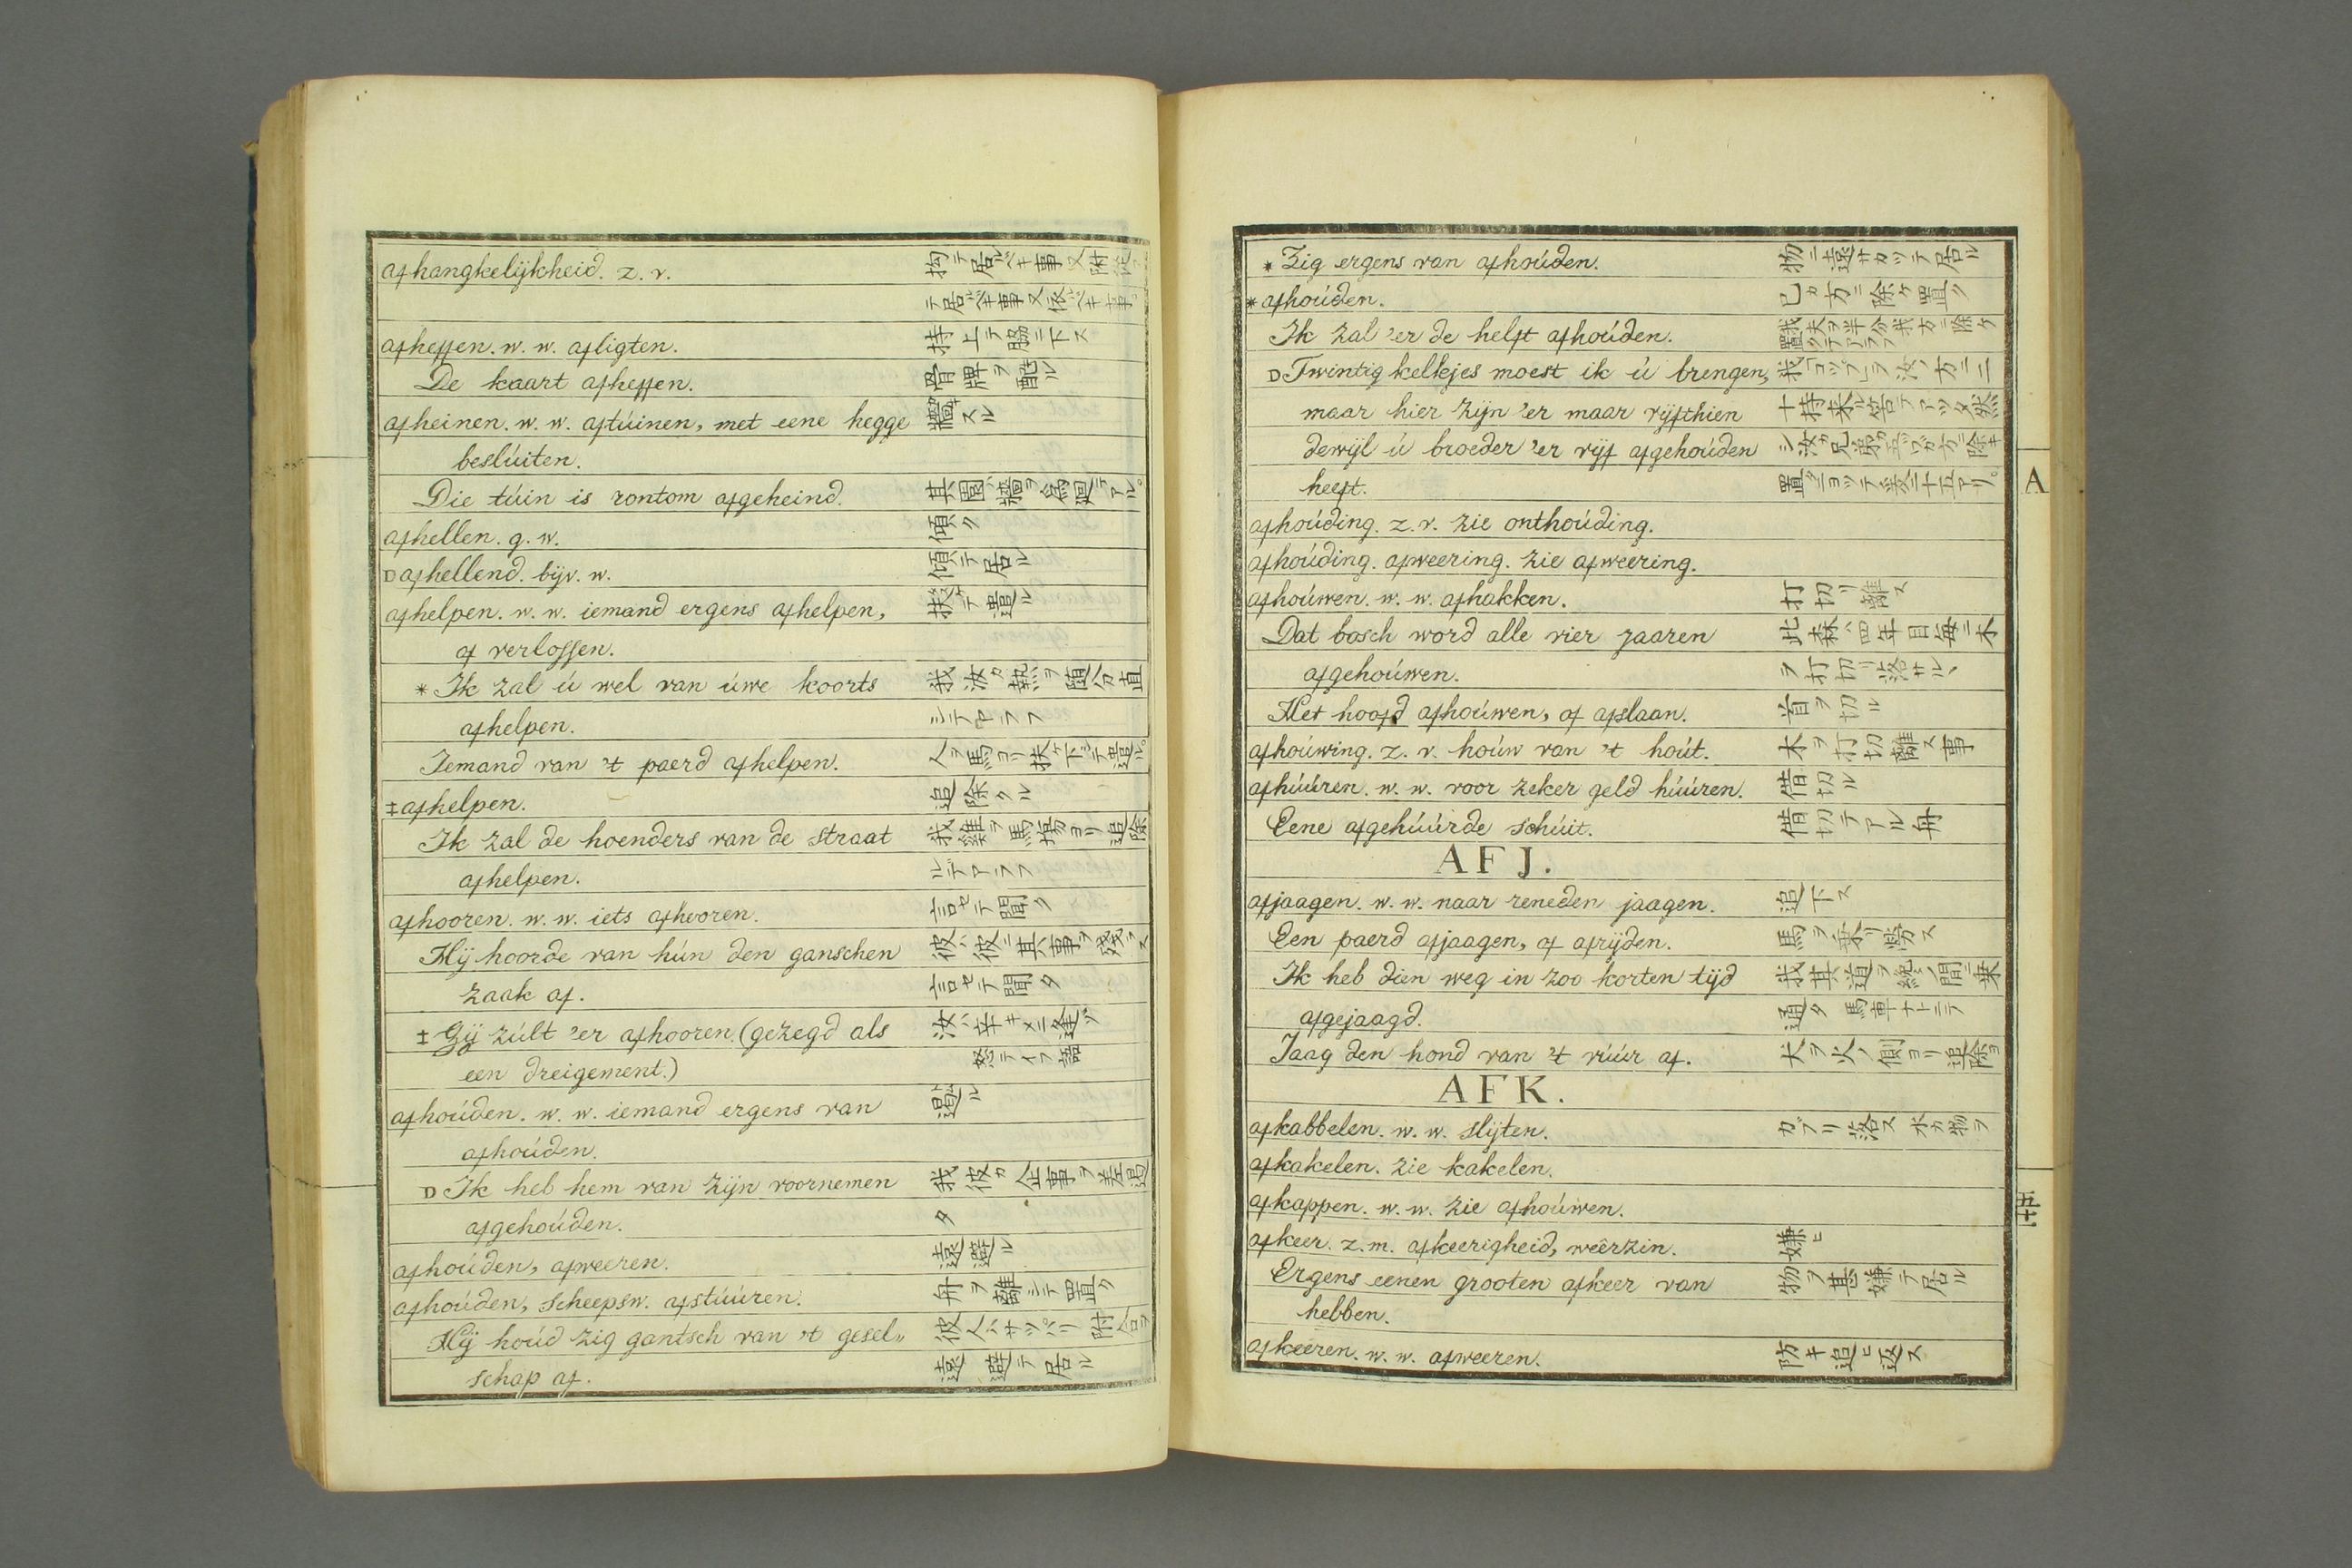 afhangkelijkheid. z. v. 拘テ居ルベキ事又附従フ
テ居ルベキ事又依ルベキ事。
afheffen. w. w. afligten. 持上テ脇ニ下ス
De kaart afheffen. 骨牌ヲ配ル
afheinen. w. w. aftúinen, met eene hegge 牆スル
beslúiten.
Die túin is rontom afgeheind. 其園ハ牆ヲ爲廻テアル。
afhellen. g. w. 傾ク
D afhellend. bijv. w. 傾テ居ル
afhelpen. w. w. iemand ergens afhelpen, 扶ケテ遣ル
of verlossen.
* Ik zal ú wel van úwe koorts 我汝カ熱ヲ随分直
afhelpen. シテヤラフ
Iemand van 't paerd afhelpen. 人ヲ馬ヨリ扶ケ下シテ遣ル。
‡ afhelpen. 追除クル
Ik zal de hoenders van de straat 我雞ヲ馬場ヨリ追除
afhelpen. ルデアラフ
afhooren. w. w. iets afhooren. 言セテ聞ク
Hij hoorde van hún den ganschen 彼ハ彼ニ其事ヲ残ラス
zaak af. 言セテ聞タ
‡ Gij zúlt 'er afhooren. (gezegd als 汝ハ辛キメニ逢ゾ
een dreigement.) 怒テイフ語
afhoúden. w. w. iemand ergens van 遏ル
afhoúden.
D Ik heb hem van zijn voornemen 我彼カ企事ヲ差遏
afgehoúden. タ
afhoúden, afweeren. 遠避ル
afhoúden, scheepsw. afstúúren. 舟ヲ離シテ置ク
Hij hoúd zig gantsch van 't gesel„ 彼人ハサッパリ附合ヲ
schap af. 遠避テ居ル
* Zig ergens van afhoúden. 物ニ遠サカッテ居ル
* afhoúden. 已カ方ニ除ケ置ク
Ik zal 'er de helft afhoúden. 我夫ヲ半分我方ニ除ケ置クデアラフ
D Twintig kelkjes moest ik ú brengen, 我「コップ」ヲ汝ノ方ニ二
maar hier zijn 'er maar vijfthien 十持来ル筈デアッタ然
dewijl ú broeder 'er vijf afgehoúden シ汝カ兄弟カ五ツカ方ニ除キ
heeft. 置クニヨッテ爰ニ十五アリ。
A
afhoúding. z. v. zie onthoúding.
afhoúding. afweering. zie afweering.
afhoúwen. w. w. afhakken. 打切リ離ス
Dat bosch word alle vier jaaren 此森ハ四年目毎ニ木
afgehoúwen. ヲ打切リ落サルヽ
Het hoofd afhoúwen, of afslaan. 首ヲ切ル
afhoúwing. z. v. hoúw van 't hoút. 木ヲ打切離ス事
afhúúren. w. w. voor zeker geld húúren. 借切ル
Eene afgehúúrde schúit. 借切テアル舟
AFJ.
afjaagen. w. w. naar beneden jaagen. 追下ス
Een paerd afjaagen, of afrijden. 馬ヲ乗リ労ス
Ik heb dien weg in zoo korten tijd 我其道ヲ纔ノ間ニ乗
afgejaagd. 通タ 馬車ナトニテ
Jaag den hond van 't vúúr af. 犬ヲ火ノ側ヨリ追除ヨ
AFK.
afkabbelen. w. w. slijten. カブリ落ス 水カ物ヲ
afkakelen. zie kakelen.
afkappen. w. w. zie afhoúwen.
afkeer. z. m. afkeerigheid, weêrzin. 嫌ヒ
Ergens eenen grooten afkeer van 物ヲ甚嫌テ居ル
hebben.
afkeeren. w. w. afweeren. 防キ追ヒ返ス